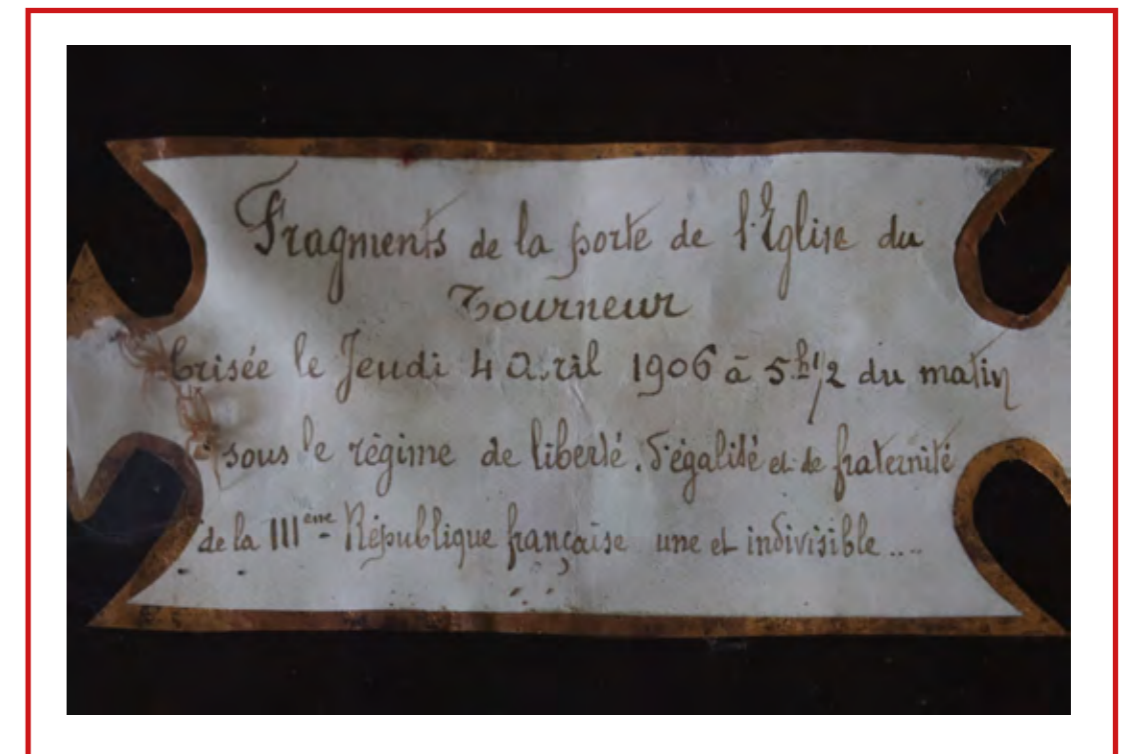 Fragments de la porte de l'Eglise du
Tourneur
brisée le Jeudi 4 Avril 1906 à 5h 1/2 du matin
sous le régime de liberté, d'égalité et de fraternité
de la IIIème République française une et indivisible....